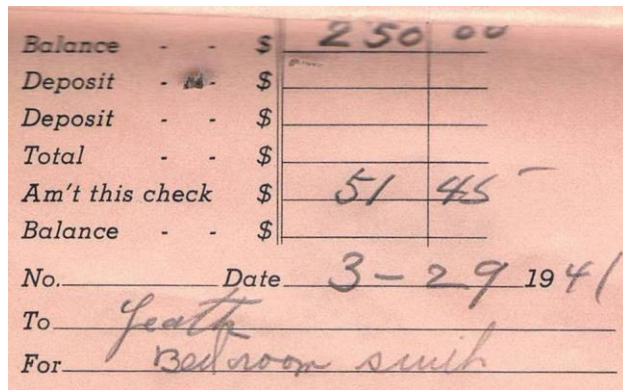 Balance - - $ 250 00
Deposit - - $
Deposit - - $
Total - - $
Am't this check $ 51 45
Balance - - $
No. Date 3-29 1941
To
For Bedroom